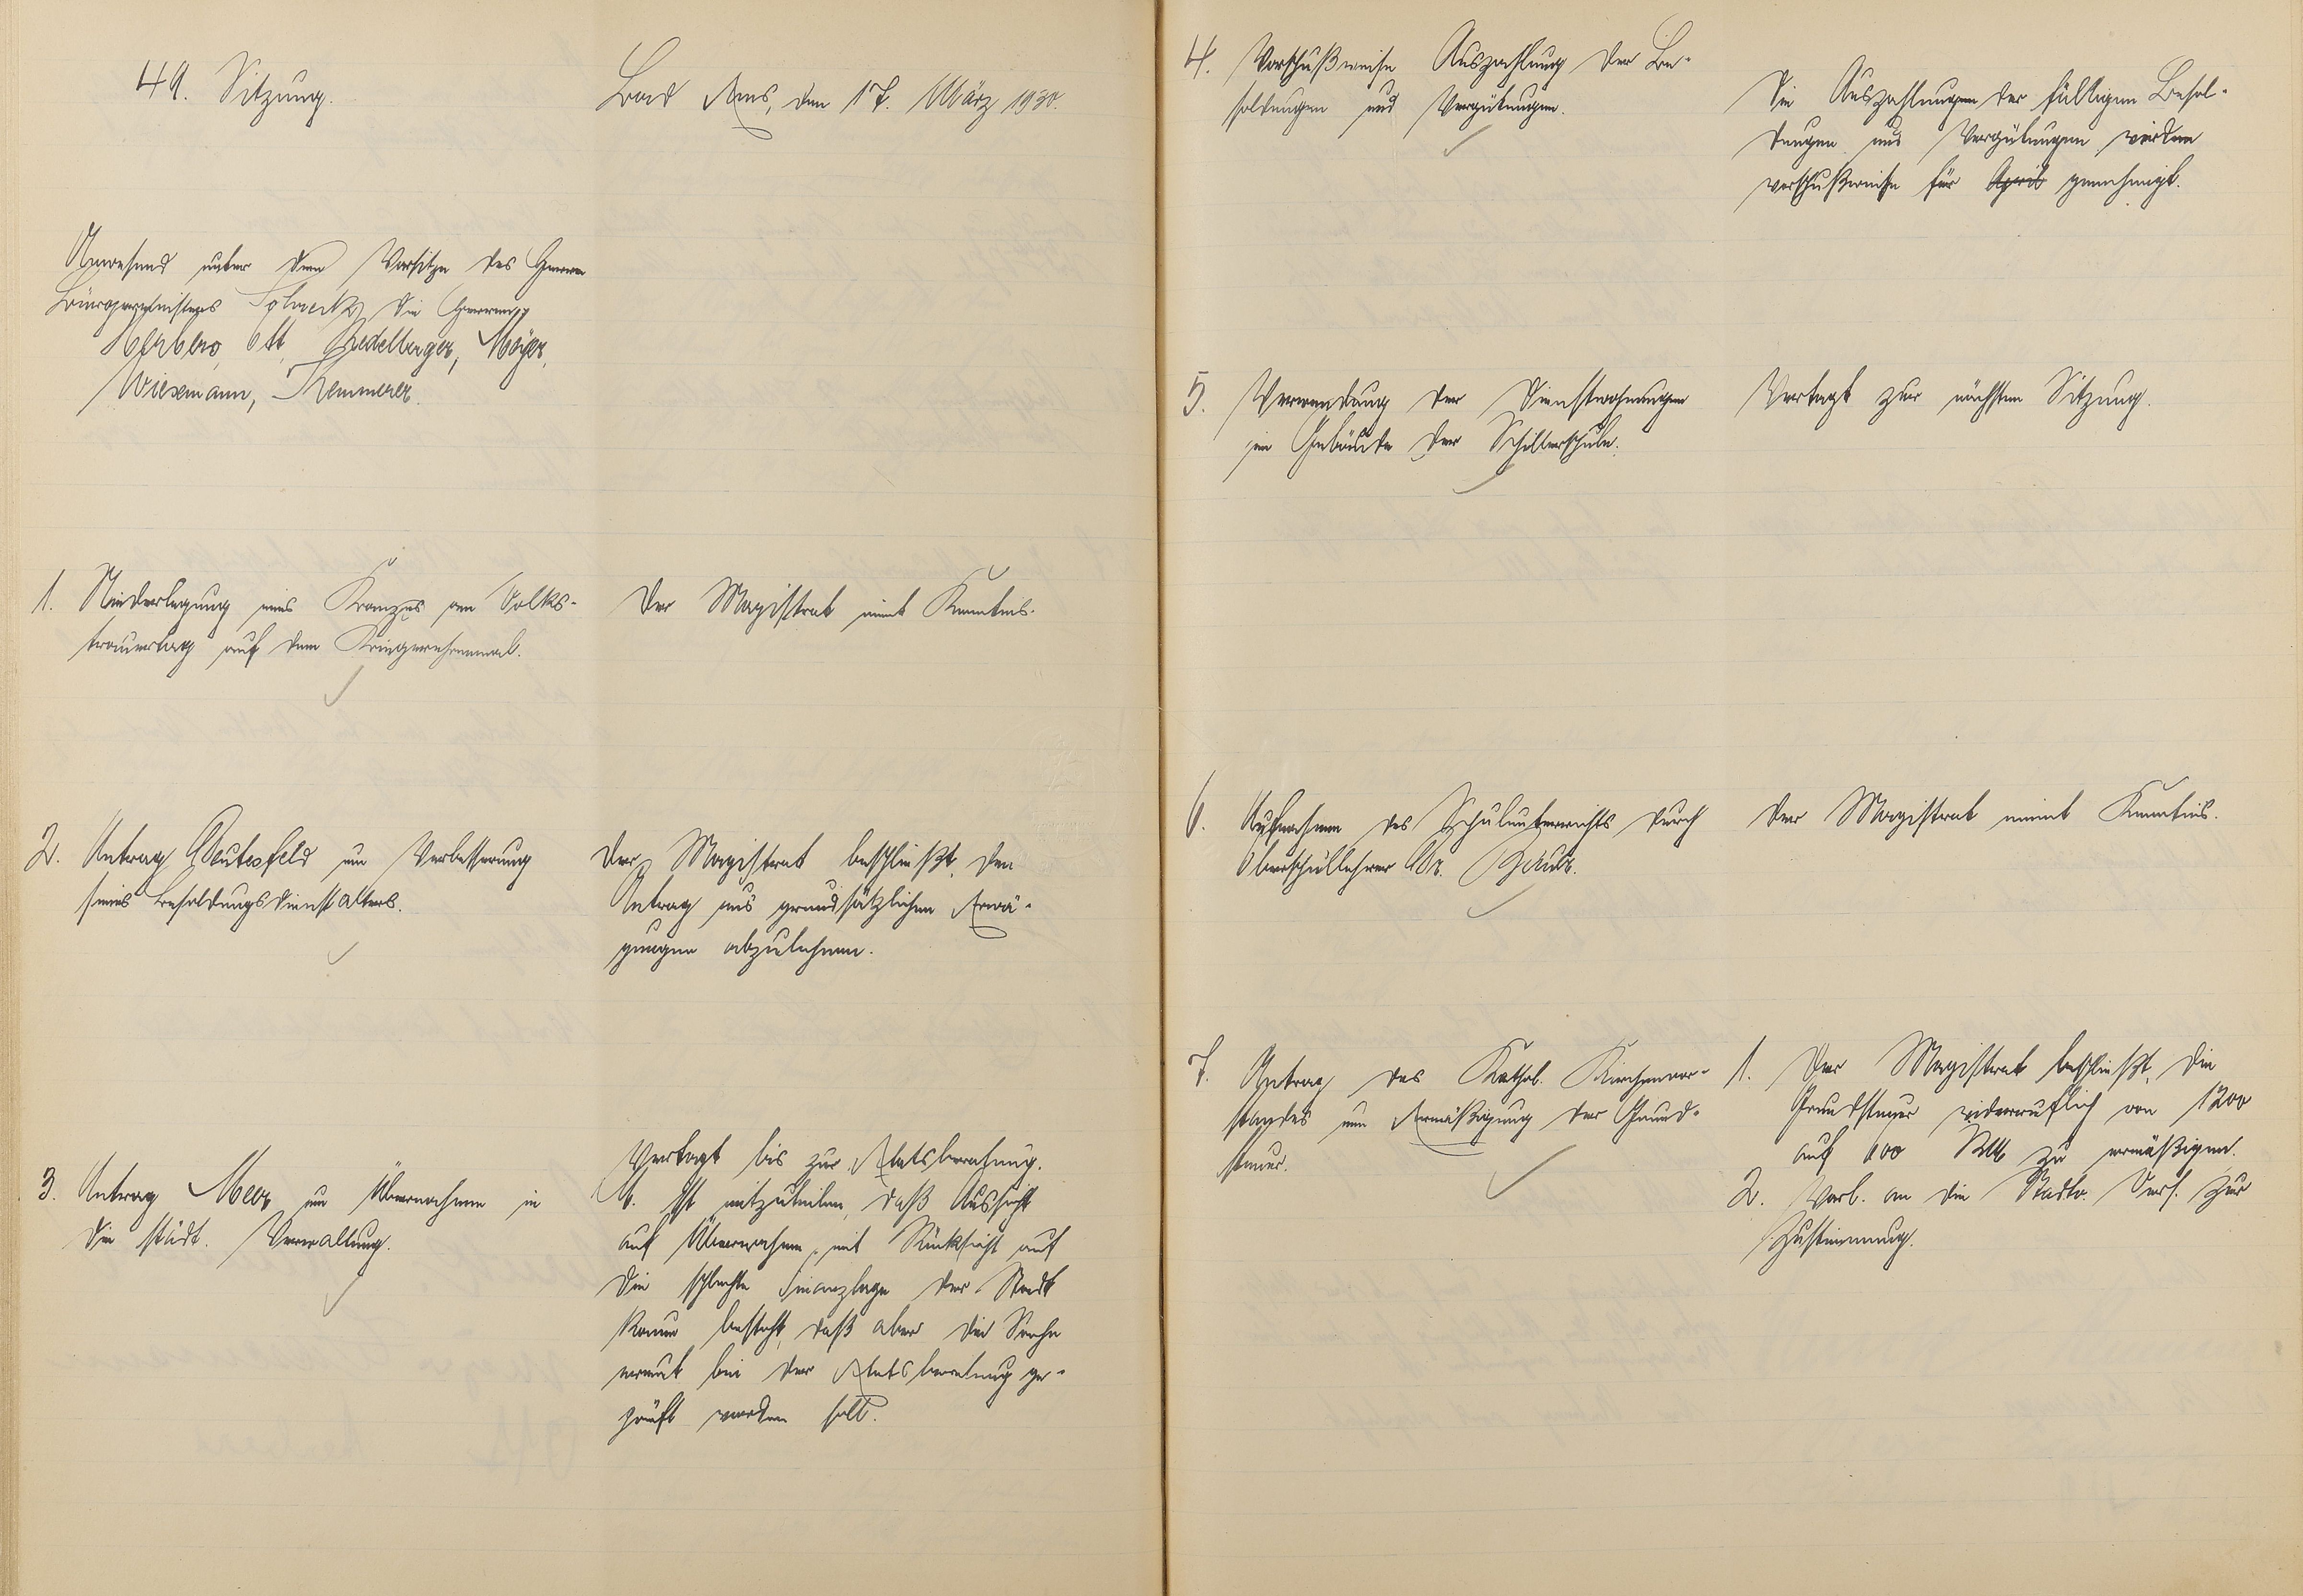 49. Sitzung.
Bad Ems, den 17. März 1930.
Anwesend unter dem Vorsitze des Herrn
Bürgermeisters die Herren
Ott, Meyer,
Wiesemann, Kemmerer.
1. Niederlegung eines Kranzes am Volks-
trauertag auf dem Kriegerehrenmal.
Der Magistrat nimt Kenntnis.
2. Antrag um Verbesserung
seines Besoldungsdienstalters.
Der Magistrat beschließt, den
Antrag aus grundsätzlichen Erwä-
gungen abzulehnen.
3. Antrag Meer um Übernahme in
die städt. Verwaltung.
Vertagt bis zur Etatsberatung.
M. ist mitzuteilen, daß Aussicht
auf Übernahme, mit Rücksicht auf
die schlechte Finanzlage der Stadt
kaum besteht, daß aber die Sache
erneut bei der Etatsberatung ge-
prüft werden soll.
4. Vorschußweise Auszahlung der Be-
soldungen und Vergütungen.
Die Auszahlungen der fälligen Besol-
dungen und Vergütungen werden
vorschußweise für April genehmigt.
5. Verwendung der Dienstwohnungen
im Gebäude der Schillerschule.
Vertagt zur nächsten Sitzung.
6. Aufnahme des Schulunterrichts durch
Oberschullehrer Dr.
Der Magistrat nimt Kenntnis.
7. Antrag des Kathol. Kirchenvor-
standes um Ermäßigung der Grund-
steuer.
1. Der Magistrat beschließt, die
Grundsteuer widerruflich von 1200
auf 600 RM zu ermäßigen.
2. Vorl. an die Stadtv. Vers. zur
Zustimmung.